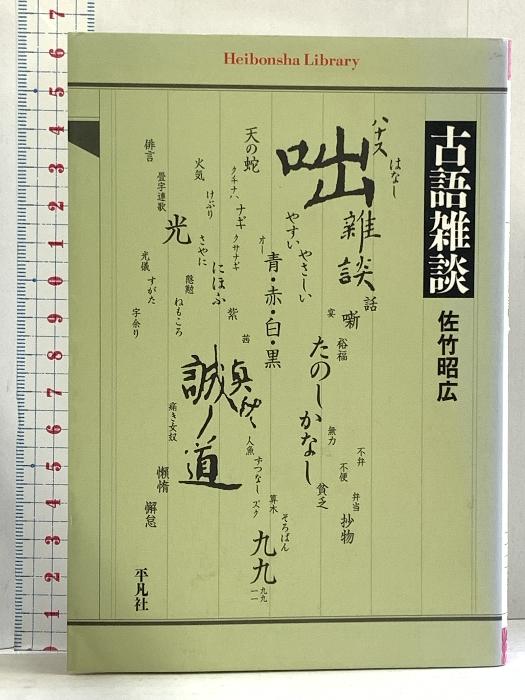 Heibonsha Library
古語雑談
佐竹昭広
ハナス
はなし
咄
雑談
話
噺
宴
裕福
たのしかなし
無力
貧乏
不弁
不便
弁当
抄物
天の蛇
クチナハ
ナギ
クサナギ
オー
やすい
やさしい
青・赤・白・黒
火気
けぶり
さやに
にほふ
紫
茜
光
俳言
畳字連歌
光儀
すがた
字余り
慇懃
ねもころ
誠ノ道
人魚
ずつなし
ズク
算木
そろばん
九九
九九
一一
痛き女奴
懶惰
懈怠
平凡社